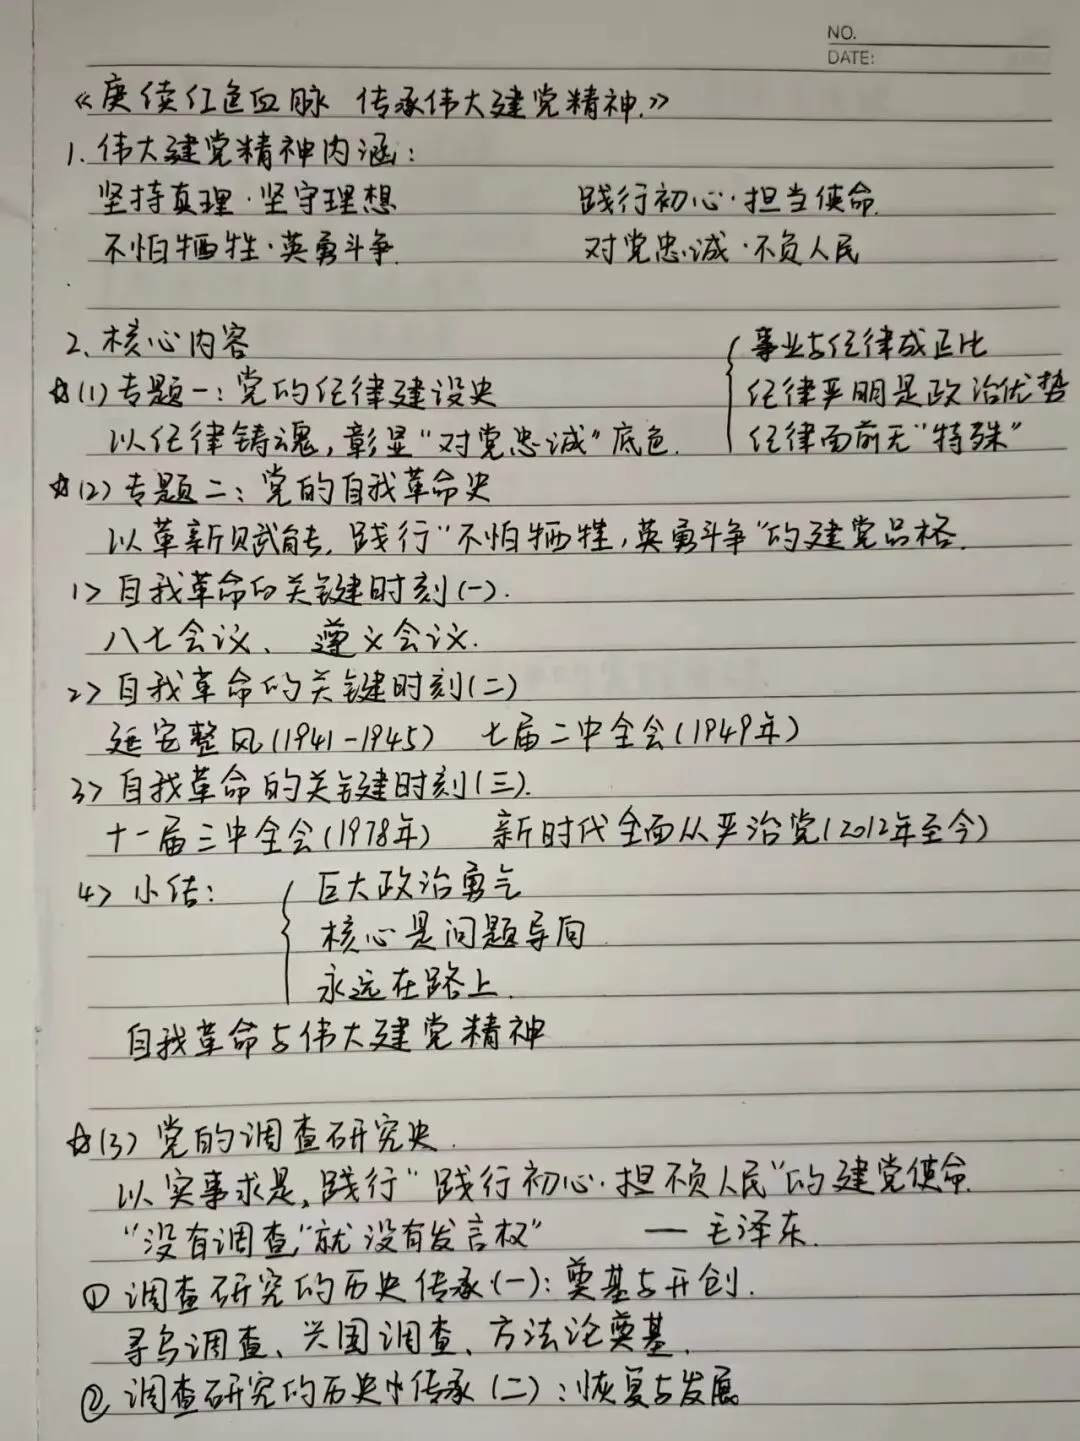 NO.
DATE:
《赓续红色血脉 传承伟大建党精神.》
1. 伟大建党精神内涵：
坚持真理·坚守理想 践行初心·担当使命.
不怕牺牲·英勇斗争. 对党忠诚·不负人民
2、核心内容 事业与纪律成正比
☆(1)专题一：党的纪律建设史 纪律严明是政治优势
以纪律铸魂，彰显“对党忠诚”底色. 纪律面前无“特殊”
☆(2)专题二：党的自我革命史
以革新赋能，践行“不怕牺牲，英勇斗争”的建党品格.
1> 自我革命的关键时刻(一).
八七会议、遵义会议.
2> 自我革命的关键时刻(二)
延安整风(1941-1945) 七届二中全会(1949年)
3> 自我革命的关键时刻(三).
十一届三中全会(1978年) 新时代全面从严治党(2012年至今)
4> 小结： 巨大政治勇气
核心是问题导向
永远在路上.
自我革命与伟大建党精神
☆(3) 党的调查研究史.
以实事求是，践行“践行初心·担不负人民”的建党使命.
“没有调查，就没有发言权” — 毛泽东.
① 调查研究的历史传承(一)：奠基与开创.
寻乌调查、兴国调查、方法论奠基.
② 调查研究的历史传承(二)：恢复与发展